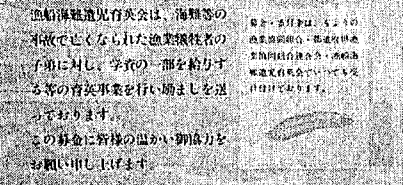 漁船海難遺児育英会は、海難等の
事故で亡くなられた漁業犠牲者の
子弟に対し、学資の一部を給与す
る等の育英事業を行い励ましを送
っております。
この募金に皆様の温かい御協力を
お願い申し上げます。
募金・寄付金は、もよりの
漁業協同組合・都道府県漁
業協同組合連合会・漁船海
難遺児育英会でいつでも受
け付けております。